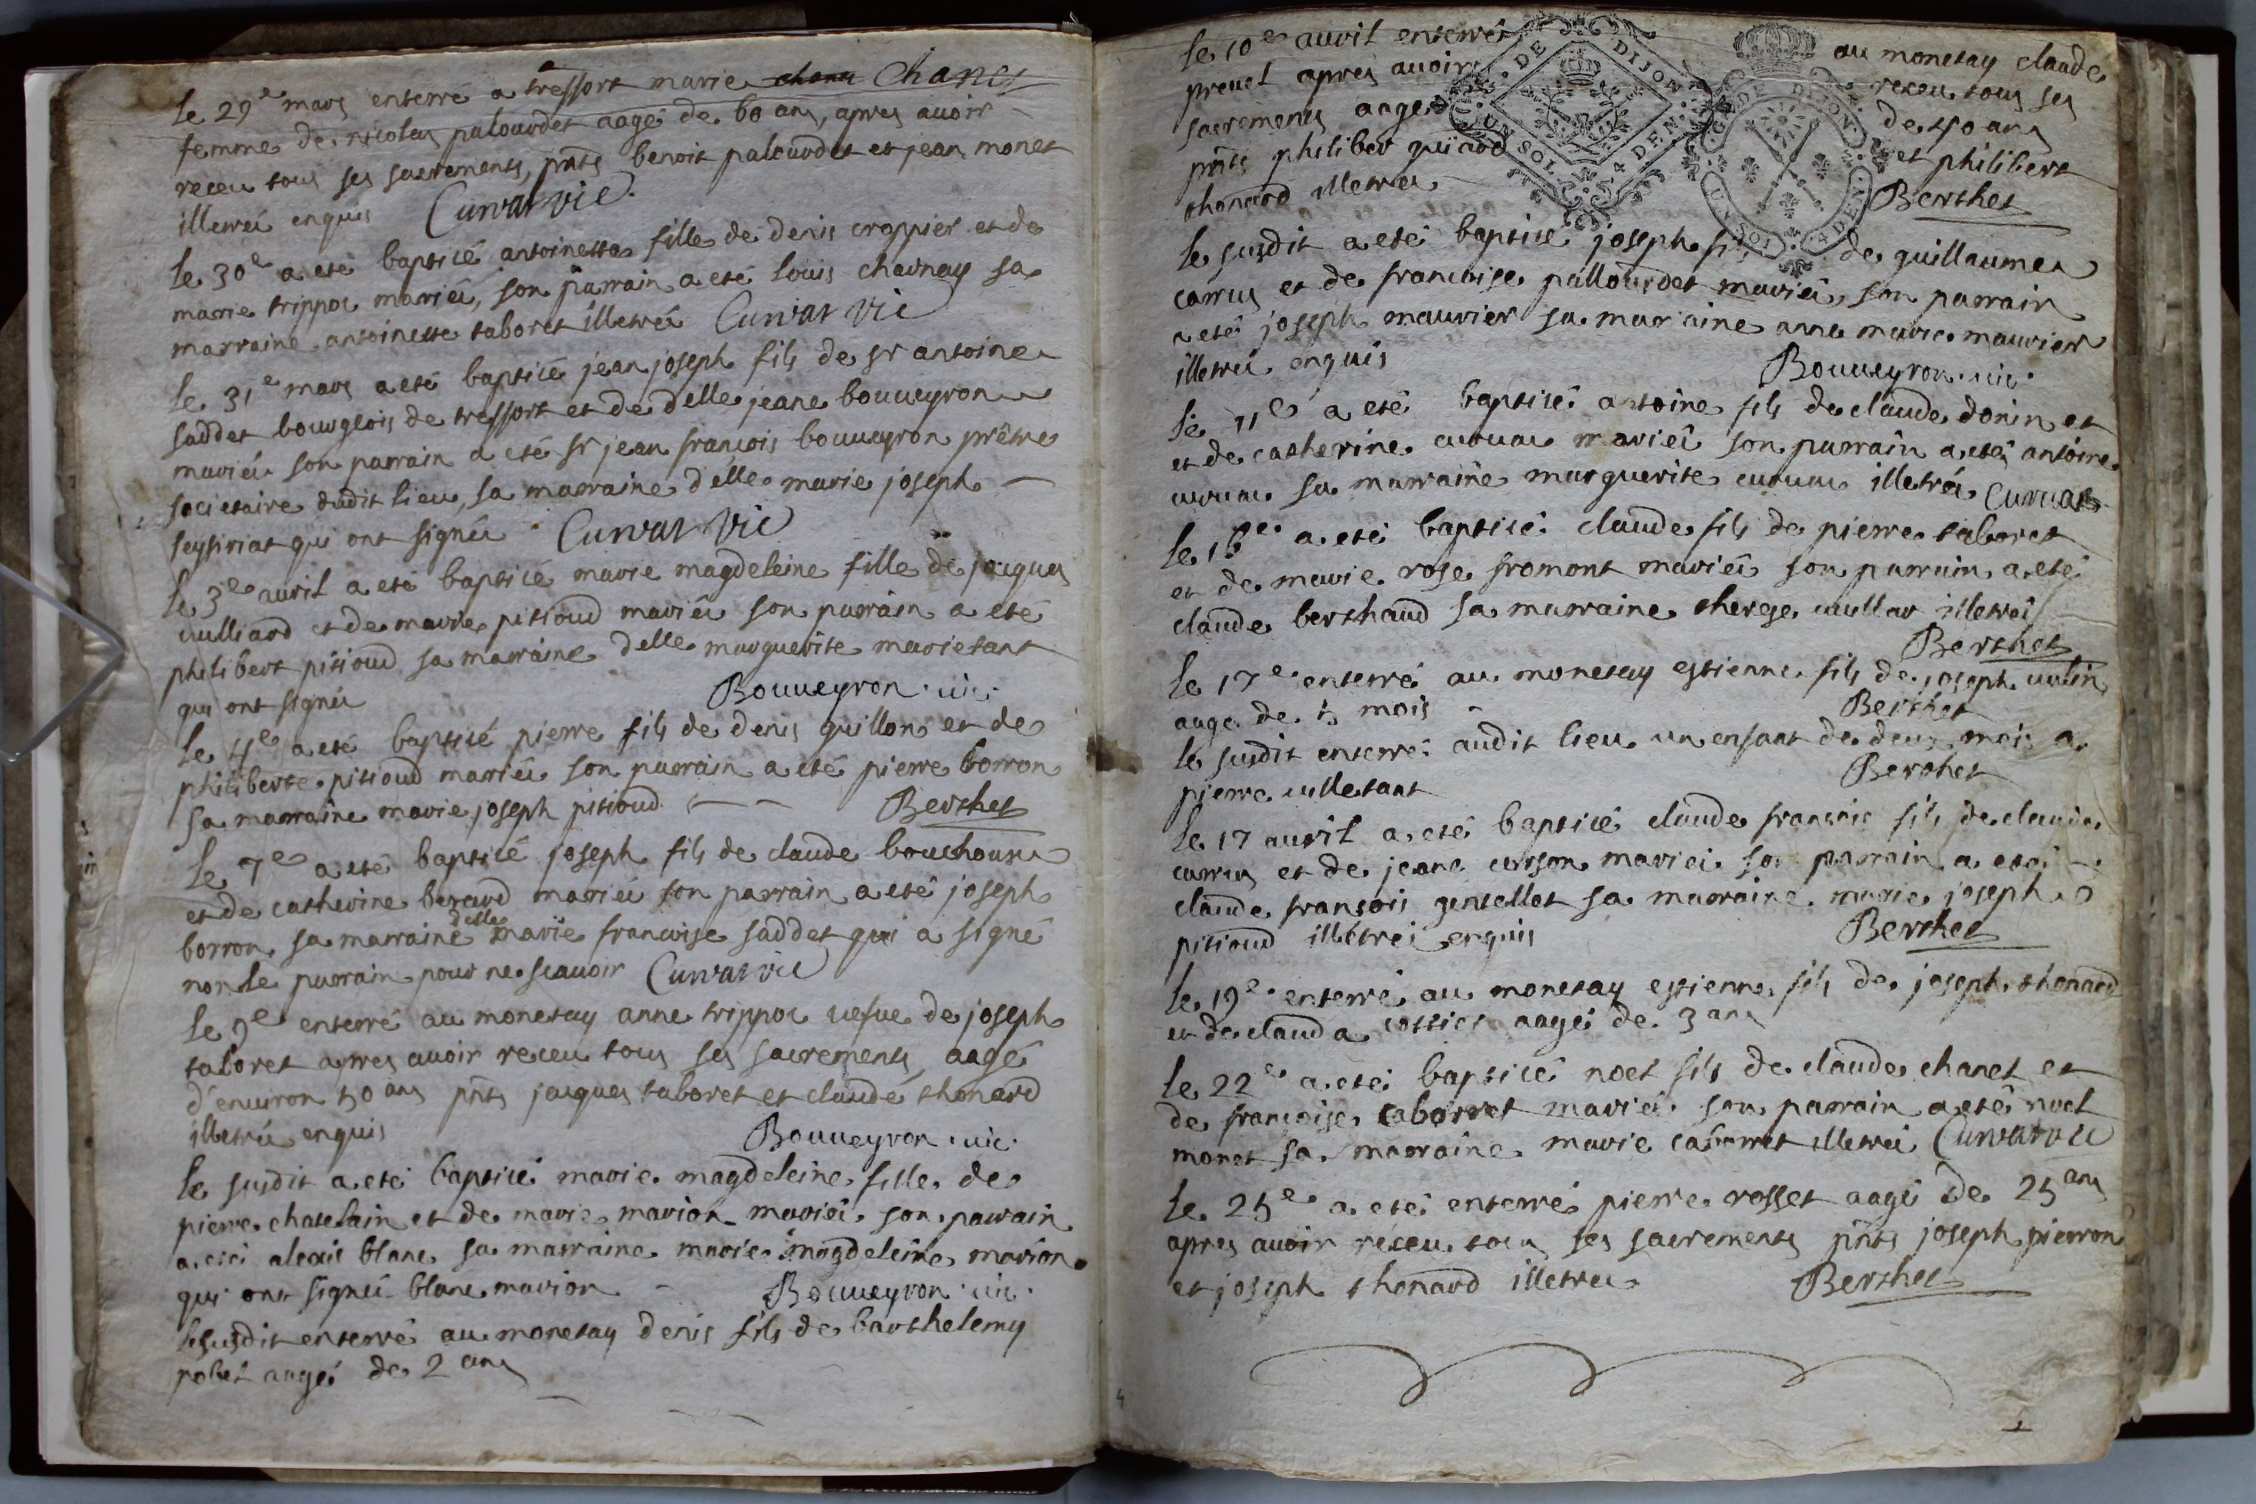 le 29e mars enterré a tressort marie chanu Chanet
femme de nicolas palourdet aagé de 60 ans, apres avoir
receu tous ses sacrements, pnts benoit palourdet et jean monet
illetrés enquis Curvat vic
le 30e a eté baptisé antoinette fille de denis croppier et de
marie trippoz mariés, son parrain a eté louis charnay sa
marraine antoinette taboret illetrés Curvat vic
le 31e mars a eté baptisé jean joseph fils de sr antoine
saddet bourgeois de tressort et de delle jeane bouueyron
mariés son parrain a eté sr jean francois bouueyron prêtre
societaire dudit lieu, sa marraine delle marie joseph
seysiriat qui ont signés Curvat vic
le 3e avril a eté baptisé marie magdeleine fille de jacques
vulliard et de marie pitioud mariés son parrain a eté
philibert pitioud sa marraine delle marguerite marietant
qui ont signés Bouueyron . vic.
le 4e a eté baptisé pierre fils de denis guillon et de
philiberte pitioud mariés son parrain a eté pierre borron
sa marraine marie joseph pitioud Berthet
le 7e a eté baptisé joseph fils de claude bouchoux
et de catherine berard mariés son parrain a eté joseph
borron sa marraine delle marie francoise saddet qui a signé
non le parrain pour ne scauoir Curvat vic
le 9e enterré au monetay anne trippoz uefue de joseph
taboret apres avoir receu tous ses sacrements, aagé
d'enuiron 50 ans pnts jacques taboret et claude thonard
illetrés enquis Bouueyron . vic.
le susdit a eté baptisé marie magdeleine fille de
pierre chatelain et de marie marion mariés son parrain
a eté alexis blanc sa marraine marie magdeleine marion
qui ont signés blanc marion Bouueyron . vic.
le susdit enterré au monetay denis fils de barthelemy
pobet aagé de 2 ans
le 10e avril enterré au monetay claude
preuel apres avoir receu tous ses
sacrements aagé de 40 ans
pnts philibert guiard et philibert
thonard illetrés Berthet
G. DE DIJON UN SOL 4 DEN.
G. DE DIJON UN SOL 4 DEN.
le susdit a eté baptisé joseph fils de guillaume
carrus et de francoise pallourdet mariés, son parrain
a eté joseph maurier sa marraine anne marie maurier
illetrés enquis Bouueyron . vic.
le 11e a eté baptisé antoine fils de claude donin et
et de catherine mariés son parrain a eté antoine
sa marraine marguerite illetrés Curvat
le 16e a eté baptisé claude fils de pierre taboret
et de marie rose fromont mariés son parrain a eté
claude berthaud sa marraine therese vullar illetrés
Berthet
le 17e enterré au monetay estienne fils de joseph
aagé de 5 mois Berthet
le susdit enterré audit lieu un enfant de deux mois a
pierre Berthet
le 17 avril a eté baptisé claude francois fils de claude
carrus et de jeane curson mariés son parrain a eté
claude fransois gentellet sa marraine marie joseph
pitioud illétrés enquis Berthet
le 19e enterré au monetay estienne fils de joseph thonard
et de clauda aagé de 3 ans
le 22e a eté baptisé noel fils de claude chanet et
de françoise caborret mariés son parrain a eté noel
monet sa marraine marie caborret illetrés Curvat vic
le 25e a eté enterré pierre rosset aagé de 25 ans
apres avoir receu tous ses sacrements pnts joseph pierron
et joseph thonard illetrés Berthet
4